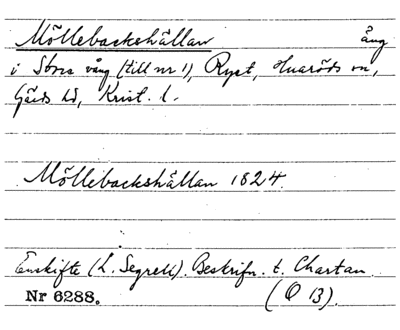 Möllebackshällan äng
i Stora vång (till nr 1), Ryet, Huaröds sn,
Gärds hd, Krist. l.
Möllebackshällan 1824.
Enskifte (L. Segrell). Beskrifn. t. Chartan
Nr 6288. (Q 13).